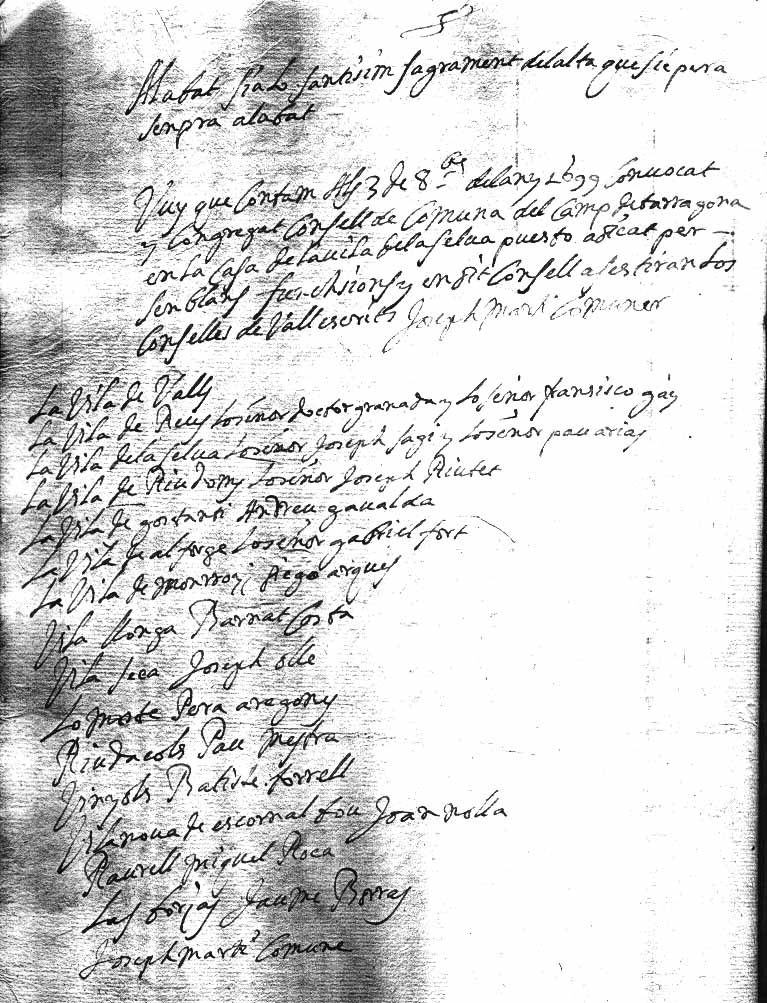 Alabat sia lo santisim sagrament del alta que sie pera
senpra alabat
Vuy que Contam Als 3 de 8bre del any 1699 Convocat
y Congregat Consell de Comuna del Camp de tarragona
en la Casa de la vila de la selva puesto adicat per
senblans funchsions y en dit Consell asestiran los
Conselles de Vall escrits Joseph marti Comuner
La Vila de Valls
La Vila de Reus lo señor doctor granada y lo señor fransisco gay
La Vila de la selva lo señor Joseph sagi y lo señor pau arias
La Vila de Riudoms lo señor Joseph Riutet
La Vila de gostanti Andreu gavalda
La Vila de alforge lo señor gabriel fort
La Vila de monroig diego argues
Vila llonga Barnat Costa
Vila seca Joseph olle
Lo morte Pera aregony
Riudacols Pau mestra
Vinyols Batiste forrell
Vilanova de escornalbou Joan nolla
Raurell miquel Roca
Las borjas Jaume Borras
Joseph marti Comune